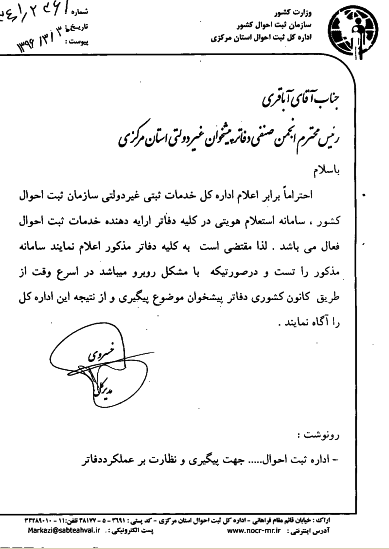 وزارت کشور
سازمان ثبت احوال کشور
اداره کل ثبت احوال استان مرکزی
شماره
تاریخ ۱۳۹۶/۳/۳
پیوست :
جناب آقای آباقری
رئیس محترم انجمن صنفی دفاتر پیشخوان غیردولتی استان مرکزی
باسلام
احتراماً برابر اعلام اداره کل خدمات ثبتی غیردولتی سازمان ثبت احوال
کشور ، سامانه استعلام هویتی در کلیه دفاتر ارایه دهنده خدمات ثبت احوال
فعال می باشد . لذا مقتضی است به کلیه دفاتر مذکور اعلام نمایند سامانه
مذکور را تست و درصورتیکه با مشکل روبرو میباشد در اسرع وقت از
طریق کانون کشوری دفاتر پیشخوان موضوع پیگیری و از نتیجه این اداره کل
را آگاه نمایند .
خسروی
مدیرکل
رونوشت :
- اداره ثبت احوال..... جهت پیگیری و نظارت بر عملکرددفاتر
اراک : خیابان قائم مقام فراهانی - اداره کل ثبت احوال استان مرکزی - کد پستی : ۳۶۹۱ - ۳۸۱۷۷ تلفن: ۱۱ - ۳۳۲۸۹۰۱۰
آدرس اینترنتی : www.nocr-mr.ir پست الکترونیکی : Markazi@sabteahval.ir